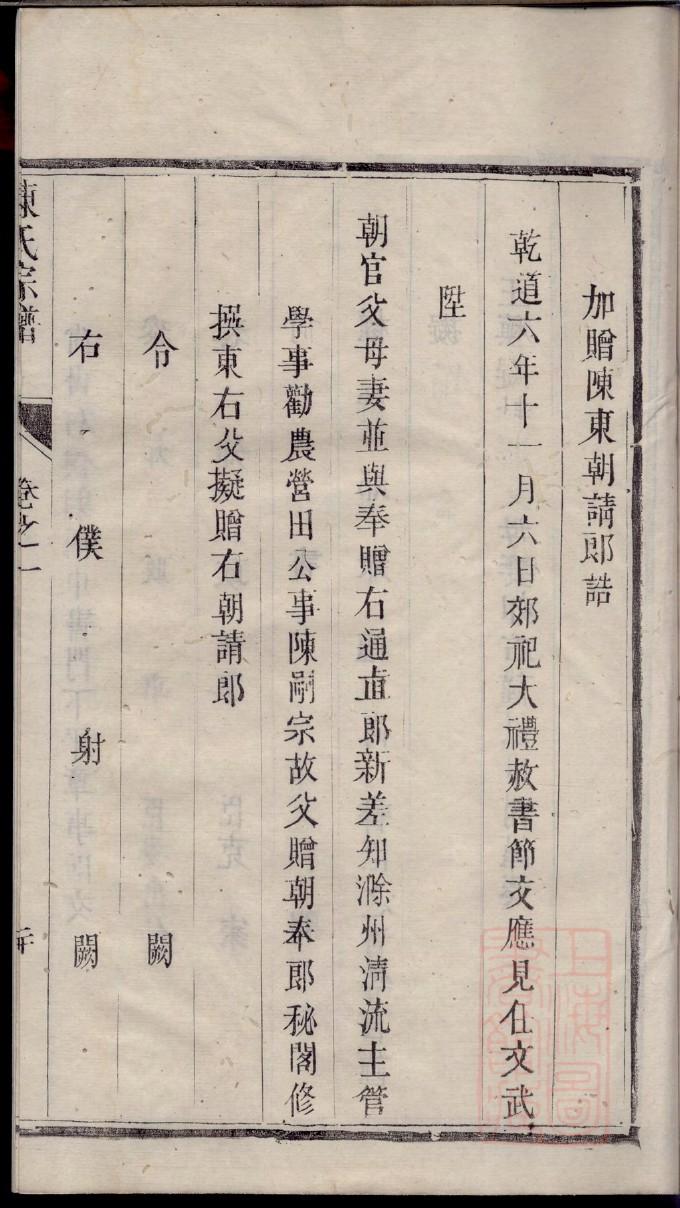 加贈陳東朝請郎誥
乾道六年十一月六日郊祀大禮赦書節文應見任文武
陞
朝官父母妻並與奉贈右通直郎新差知滁州清流主管
學事勸農營田公事陳嗣宗故父贈朝奉郎秘閣修
撰東右父擬贈右朝請郎
令 闕
右僕射 闕
陳氏宗譜 卷之二